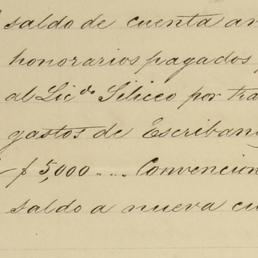 saldo de cuenta an
honorarios pagados
al Lic.do Siliceo por tra
gastos de Escriban
$5,000 .... Convencion
saldo a nueva cu